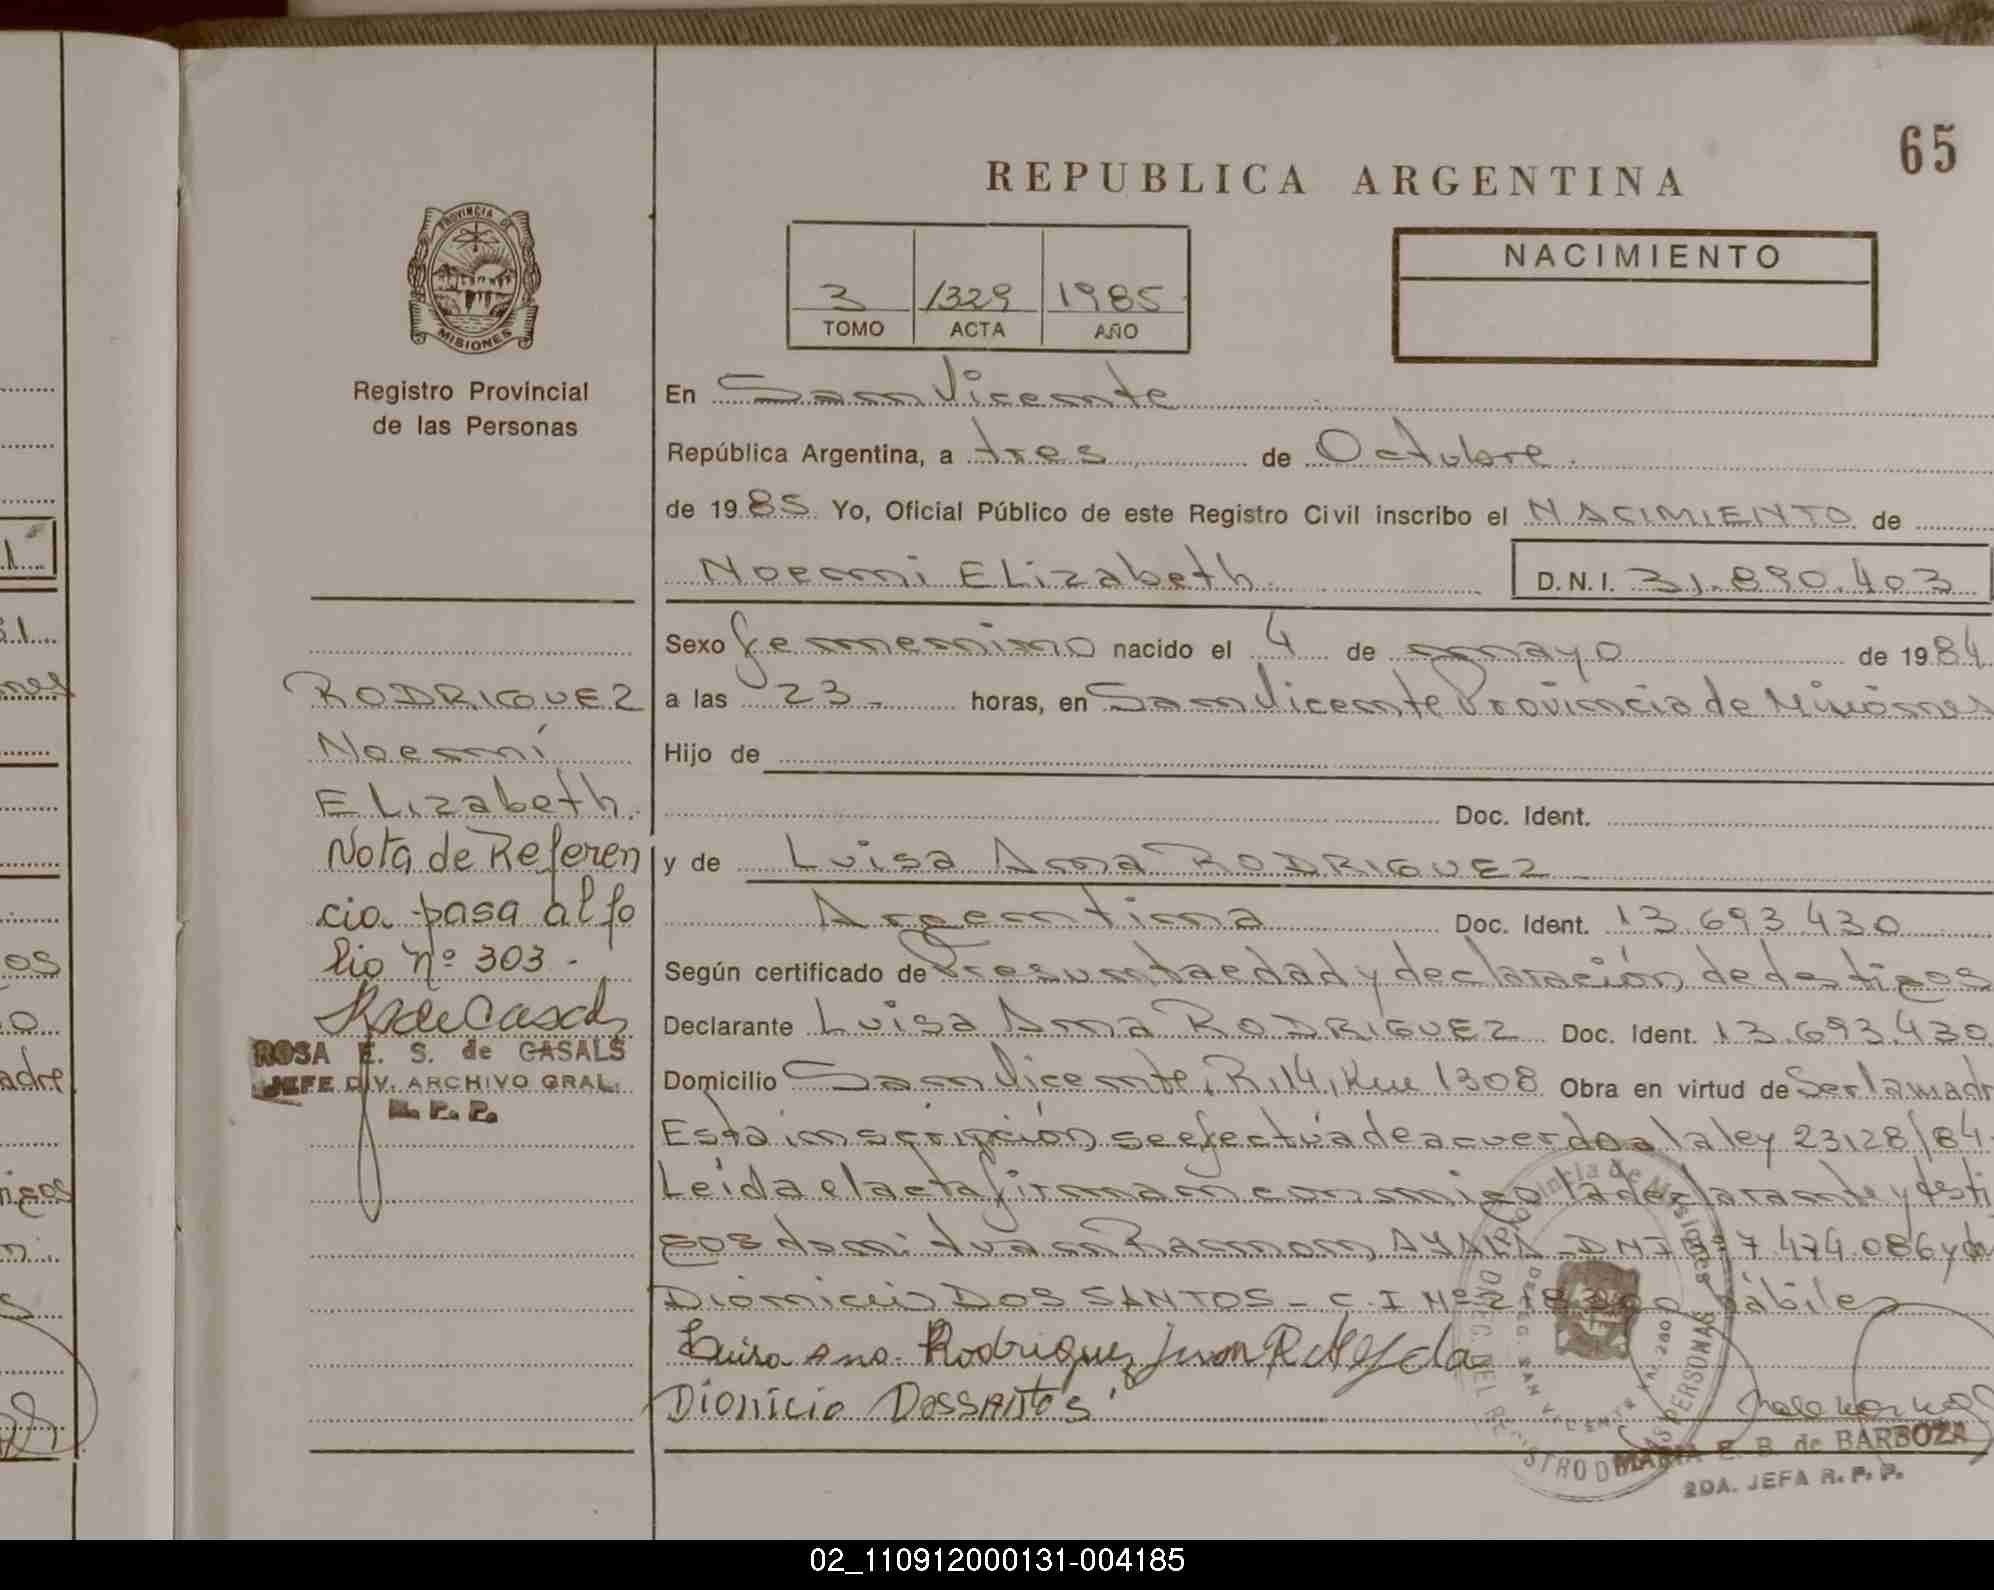 65
REPUBLICA ARGENTINA
PROVINCIA DE
MISIONES
NACIMIENTO
3 1329 1985
TOMO ACTA AÑO
Registro Provincial
de las Personas
En San Vicente
República Argentina, a tres de Octubre.
de 1985 Yo, Oficial Público de este Registro Civil inscribo el NACIMIENTO de
Noemi ELizabeth. D.N.I. 31.890.403
Sexo femenino nacido el 4 de mayo de 1984
a las 23 horas, en San Vicente Provincia de Misiones
Hijo de
Doc. Ident.
y de Luisa Ana RODRIGUEZ
Argentina Doc. Ident. 13.693.430
Según certificado de Presunta edad y declaración de testigos
Declarante Luisa Ana RODRIGUEZ Doc. Ident. 13.693.430
Domicilio San Vicente, R.14, Km 1308 Obra en virtud de Ser la madr
Esta inscripción se efectúa de acuerdo a la ley 23128/84.
Leída el acta firman conmigo la declarante y testi
gos don: Juan Ramon AYALA - DNI 7.474.086 y
Dionicio DOS SANTOS - C.I Nº hábiles
Luisa Ana. Rodriguez Juan R Ayala
Dionicio Dossantos
MARIA E. B. de BARBOZA
2DA. JEFA R. P. P.
RODRIGUEZ
Noemí
ELizabeth.
Nota de Referen
cia pasa al fo
lio nº 303 -
ROSA E. S. de CASALS
JEFE DIV. ARCHIVO GRAL.
R. P. P.
02_110912000131-004185